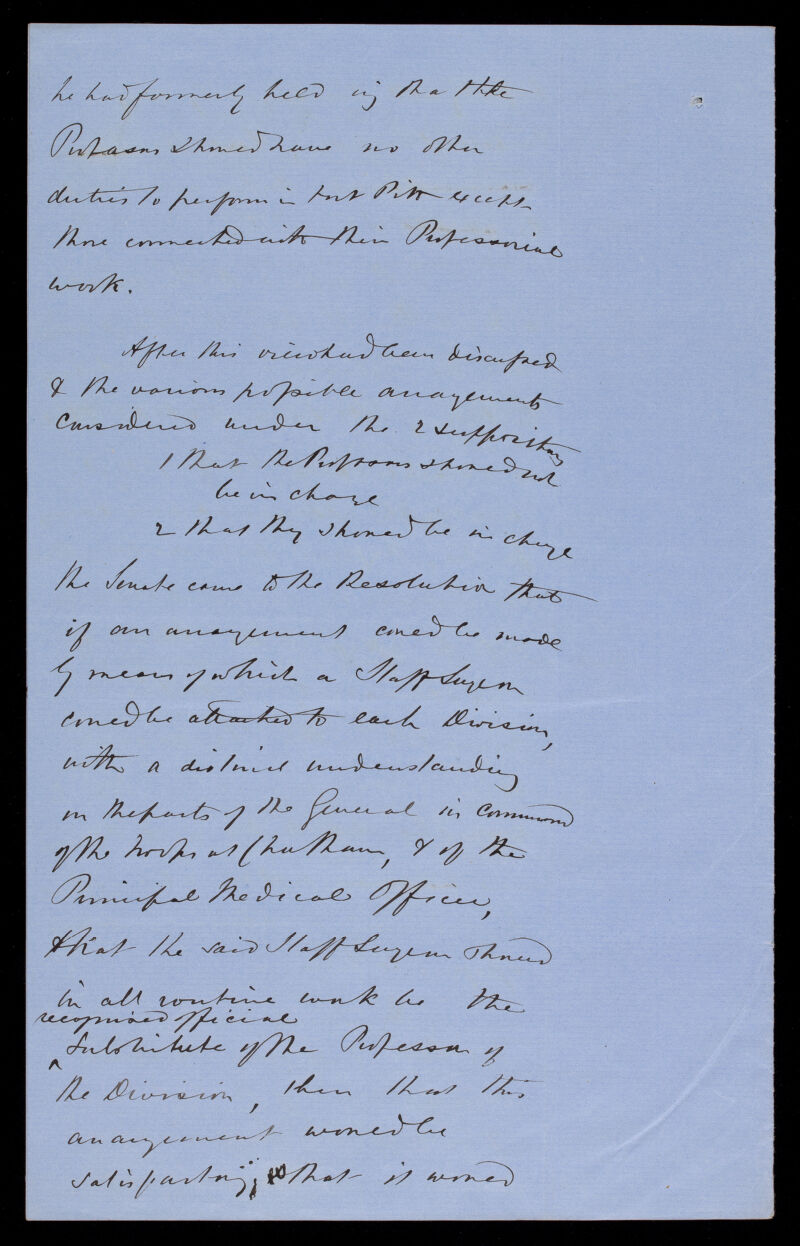 he had formerly held viz that the
Professors should have no other
duties to perform in Fort Pitt except
those connected with their Professorial
work.
After this view had been discussed
& the various possible arrangements
considered under the 2 suppositions
1 that the Professors should not
be in charge
2 that they should be in charge
the Senate came to the Resolution that
if an arrangement could be made
by means of which a Staff Surgeon
could be attached to each Division,
with a distinct understanding
on the parts of the General in Command
of the troops at Chatham, & of the
Principal Medical Officer,
that the said Staff Surgeon should
in all routine work be the
recognised official
^ Substitute of the Professor of
the Division, then that this
arrangement would be
satisfactory; & that it would